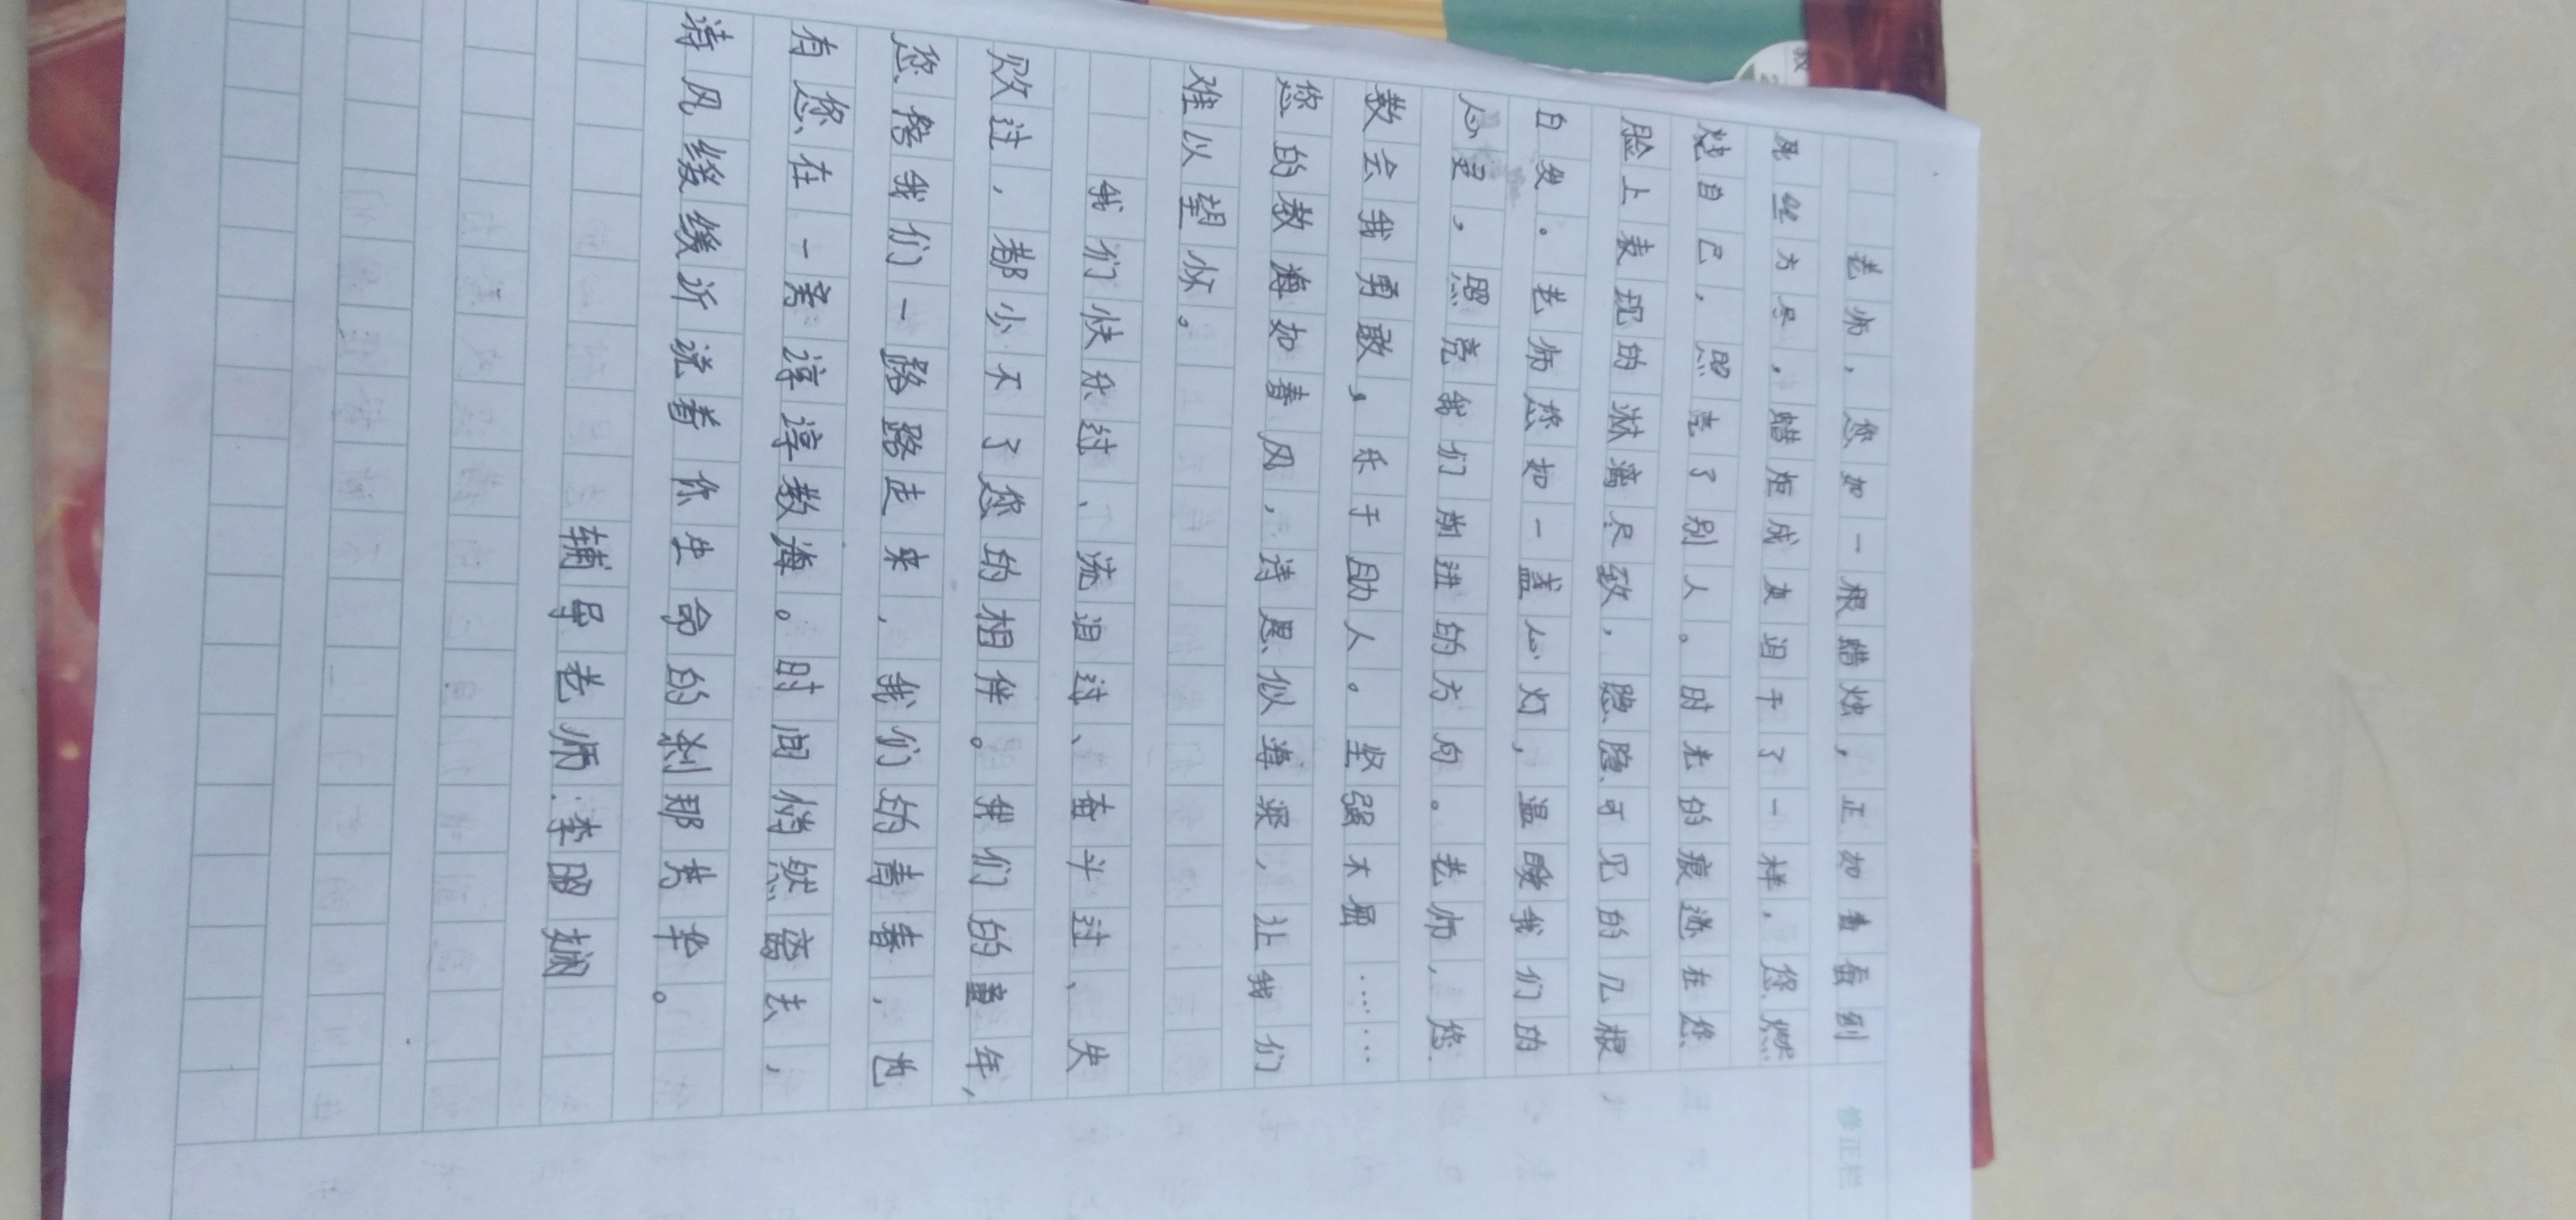 老师，您如一根蜡烛，正如春蚕到
死丝方尽，蜡炬成灰泪干了一样，您燃
烧自己，照亮了别人。时光的痕迹在您
脸上表现的淋漓尽致，隐隐可见的几根
白发。老师您如一盏心灯，温暖我们的
心灵，照亮我们前进的方向。老师，您
教会我勇敢，乐于助人。坚强不屈……
您的教海如春风，诗恩似海深，让我们
难以望怀。
我们快乐过、流泪过、奋斗过、失
败过，都少不了您的相伴。我们的童年，
您陪我们一路路走来，我们的青春，也
有您在一旁谆谆教海。时间悄然离去，
待风缓缓诉说着你生命的刹那芳华。
辅导老师：李
修正栏